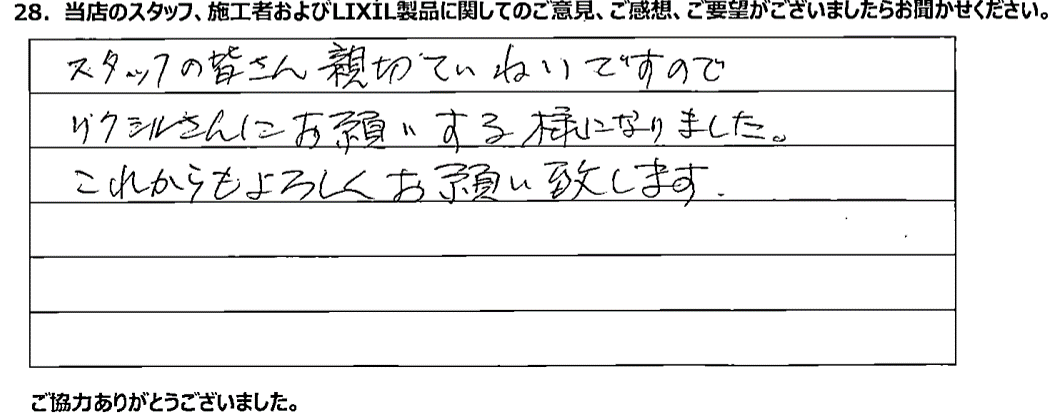 28. 当店のスタッフ、施工者およびLIXIL製品に関してのご意見、ご感想、ご要望がございましたらお聞かせください。
スタッフの皆さん親切ていねいですので
リクシルさんにお願いする様になりました。
これからもよろしくお願い致します.
ご協力ありがとうございました。